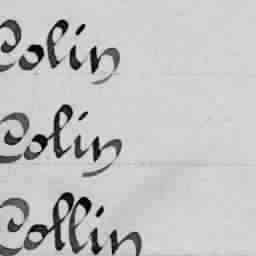 Colin
Colin
Collin